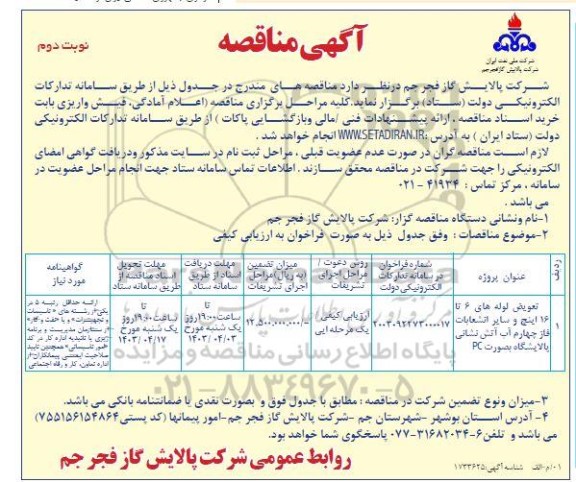 شرکت ملی نفت ایران
شرکت پالایش گاز فجر جم
آگهی مناقصه
نوبت دوم
شرکت پالایش گاز فجر جم درنظر دارد مناقصه های مندرج در جدول ذیل از طریق سامانه تدارکات
الکترونیکی دولت (ستاد) برگزار نماید.کلیه مراحل برگزاری مناقصه (اعلام آمادگی، فیش واریزی بابت
خرید اسناد مناقصه ، ارائه پیشنهادات فنی /مالی وبازگشایی پاکات ) از طریق سامانه تدارکات الکترونیکی
دولت (ستاد ایران ) به آدرس :WWW.SETADIRAN.IR انجام خواهد شد .
لازم است مناقصه گران در صورت عدم عضویت قبلی ، مراحل ثبت نام در سایت مذکور ودریافت گواهی امضای
الکترونیکی را جهت شرکت در مناقصه محقق سازند . اطلاعات تماس سامانه ستاد جهت انجام مراحل عضویت در
سامانه ، مرکز تماس : ۴۱۹۳۴ - ۰۲۱
می باشد .
۱-نام ونشانی دستگاه مناقصه گزار: شرکت پالایش گاز فجر جم
۲-موضوع مناقصات : وفق جدول ذیل به صورت فراخوان به ارزیابی کیفی
ردیف
عنوان پروژه
شماره فراخوان
در سامانه تدارکات
الکترونیکی دولت
روش دعوت /
مراحل اجرای
تشریفات
میزان تضمین
(به ریال)مراحل
اجرای تشریفات
مهلت دریافت
اسناد از طریق
سامانه ستاد
مهلت تحویل
اسناد مناقصه از
طریق سامانه ستاد
گواهینامه
مورد نیاز
۱
تعویض لوله های ۶ تا
۱۶ اینچ و سایر انشعابات
فاز چهارم آب آتش نشانی
پالایشگاه بصورت PC
۲۰۰۳۰۹۲۴۷۳۰۰۰۰۱۷
ارزیابی کیفی /
یک مرحله ایی
۱۲,۵۰۰,۰۰۰,۰۰۰/-
تا
ساعت ۱۹:۰۰روز
یک شنبه مورخ
۱۴۰۳/۰۴/۰۳
تا
ساعت ۱۹:۰۰روز
یک شنبه مورخ
۱۴۰۳/۰۴/۱۷
ارائه حداقل رتبه ۵ در
یکی از رشته های «تاسیسات
و تجهیزات» و یا «نفت و گاز»
از سازمان مدیریت و برنامه
ریزی با تائیدیه اداره کار در کد
«امور تاسیساتی» همچنین تایید
صلاحیت ایمنی پیمانکاران از
اداره تعاون، کار و رفاه اجتماعی
پایگاه اطلاع رسانی مناقصه و مزایده
۰۲۱-۸۸۳۴۹۶۷۰-۵
۳-میزان ونوع تضمین شرکت در مناقصه : مطابق با جدول فوق و بصورت نقدی یا ضمانتنامه بانکی می باشد.
۴- آدرس استان بوشهر -شهرستان جم -شرکت پالایش گاز فجر جم-امور پیمانها (کد پستی۷۵۵۱۵۶۱۵۴۸۶۴)
می باشد و تلفن۶-۳۱۶۸۲۰۳۴-۰۷۷ پاسخگوی شما خواهد بود.
روابط عمومی شرکت پالایش گاز فجر جم
۰۱/م-الف شناسه آگهی:۱۷۳۳۶۲۵